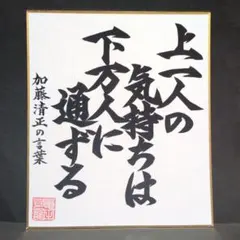 上一人の
気持ちは
下万人に
通ずる
加藤清正の言葉